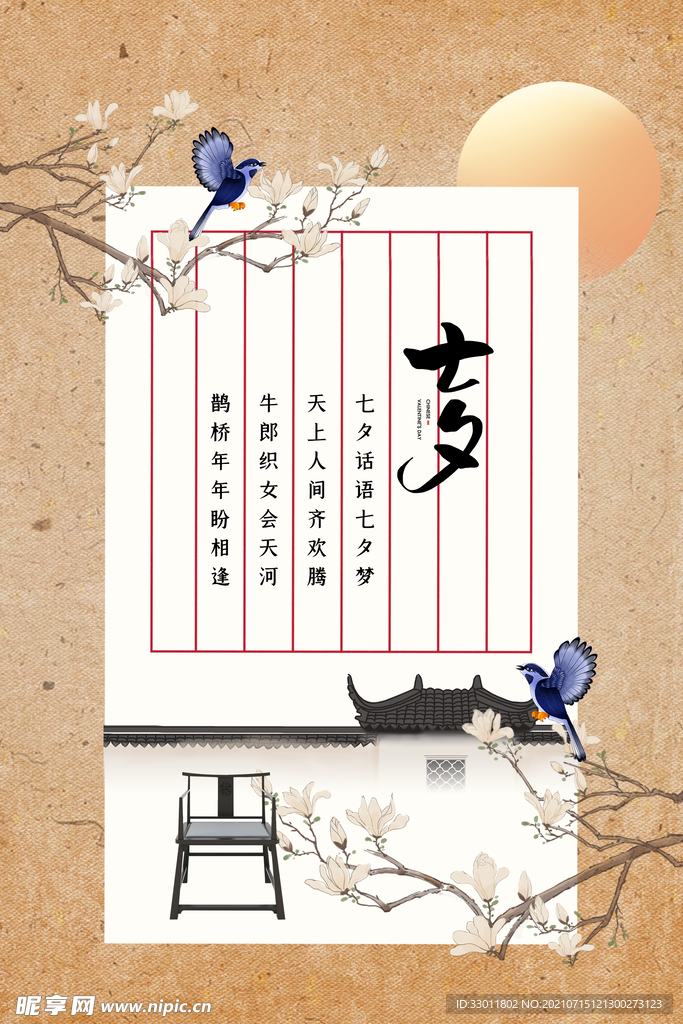 七夕
CHINESE
VALENTINE'S DAY
七夕话语七夕梦
天上人间齐欢腾
牛郎织女会天河
鹊桥年年盼相逢
昵享网 www.nipic.cn
ID:33011802 NO:20210715121300273123